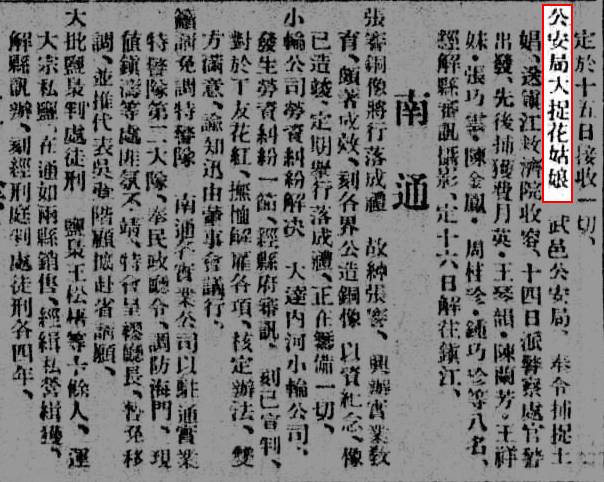 定於十五日接收一切、
公安局大捉花姑娘　武邑公安局、奉令捕捉土
娼、送鎮江救濟院收容、十四日派警察處官警
出發、先後捕獲費月英·王琴韻·陳蘭芳·王祥
妹·張巧雲·陳金鳳·周桂珍·鍾巧珍等八名、
經解縣審訊攝影、定十六日解往鎮江、
南通
張謇銅像將行落成禮　故紳張謇、興辦實業教
育、頗著成效、刻各界公造銅像、以資紀念、像
已造竣、定期舉行落成禮、正在籌備一切、
小輪公司勞資糾紛解決　大達內河小輪公司、
發生勞資糾紛一節、經縣府審訊、刻已宣判、
對於工友花紅、撫恤解雇各項、核定辦法、雙
方滿意、諭知迅由董事會議行、
籲請免調特警隊　南通各實業公司以駐通實業
特警隊第二大隊、奉民政廳令、調防海門、現
值鎮濤等處匪氛不靖、特會呈繆廳長、暫免移
調、並推代表吳階顧擴赴省請願、
大批鹽梟判處徒刑　鹽梟王松等十餘人、運
大宗私鹽、在通如兩縣銷售、經緝私營緝獲、
解縣訊辦、刻經刑庭判處徒刑各四年、